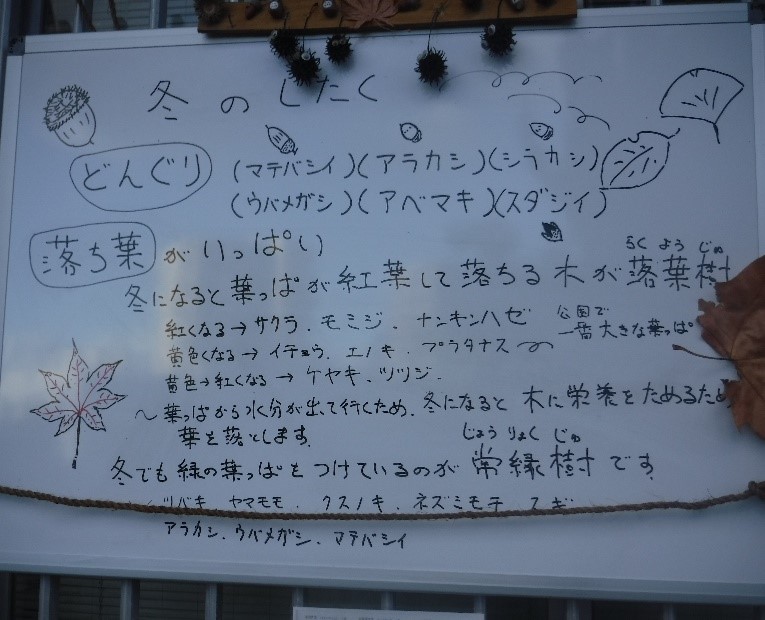 冬のしたく
どんぐり (マテバシイ)(アラカシ)(シラカシ)
(ウバメガシ)(アベマキ)(スダジイ)
落ち葉がいっぱい
らくようじゅ
冬になると葉っぱが紅葉して落ちる木が落葉樹
紅くなる→サクラ．モミジ．ナンキンハゼ
公園で
一番大きな葉っぱ
黄色くなる→イチョウ．エノキ．プラタナス
黄色→紅くなる→ケヤキ．ツツジ．
〜葉っぱから水分が出て行くため．冬になると木に栄養をためるため
葉を落とします．
じょうりょくじゅ
冬でも緑の葉っぱをつけているのが常緑樹です．
ツバキ ヤマモモ．クスノキ．ネズミモチ スギ
アラカシ．ウバメガシ．マテバシイ